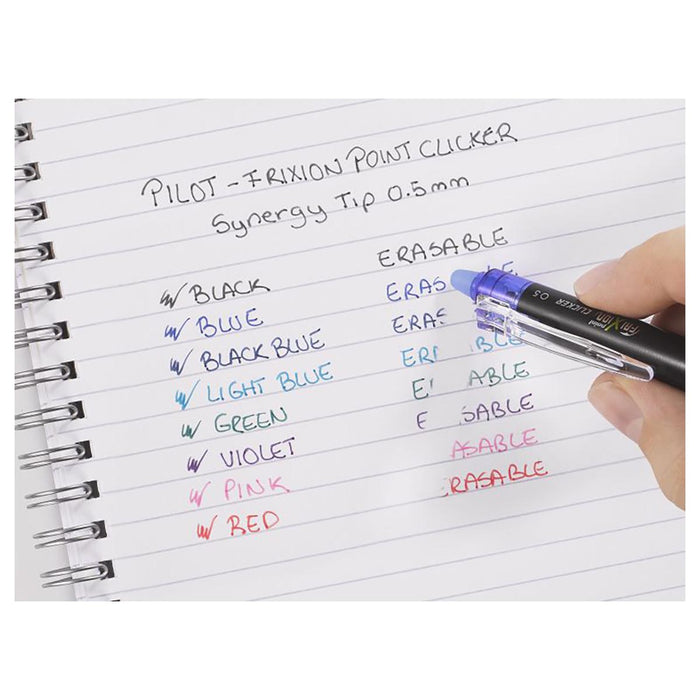 PILOT - FRIXION POINT CLICKER
Synergy Tip 0.5mm
ERASABLE
BLACK
ERAS BLE
BLUE
ERAS
BLACK BLUE
ERI BLE
LIGHT BLUE
E ABLE
GREEN
E SABLE
VIOLET
ASABLE
PINK
ERASABLE
RED
pilot FRIXION CLICKER 0.5